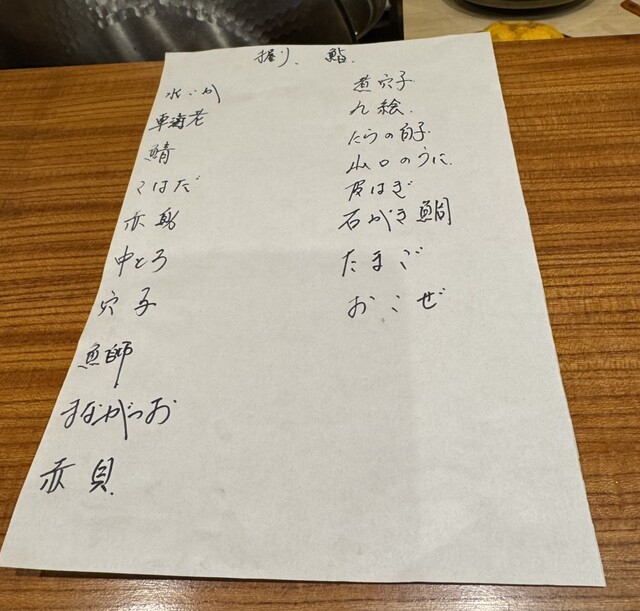 握り、鮨、
水いか
車海老
鯖
こはだ
赤身
中とろ
穴子
鰤
まながつお
赤貝
煮穴子
九絵
たらの白子
山口のうに
皮はぎ
石がき鯛
たまご
おこぜ